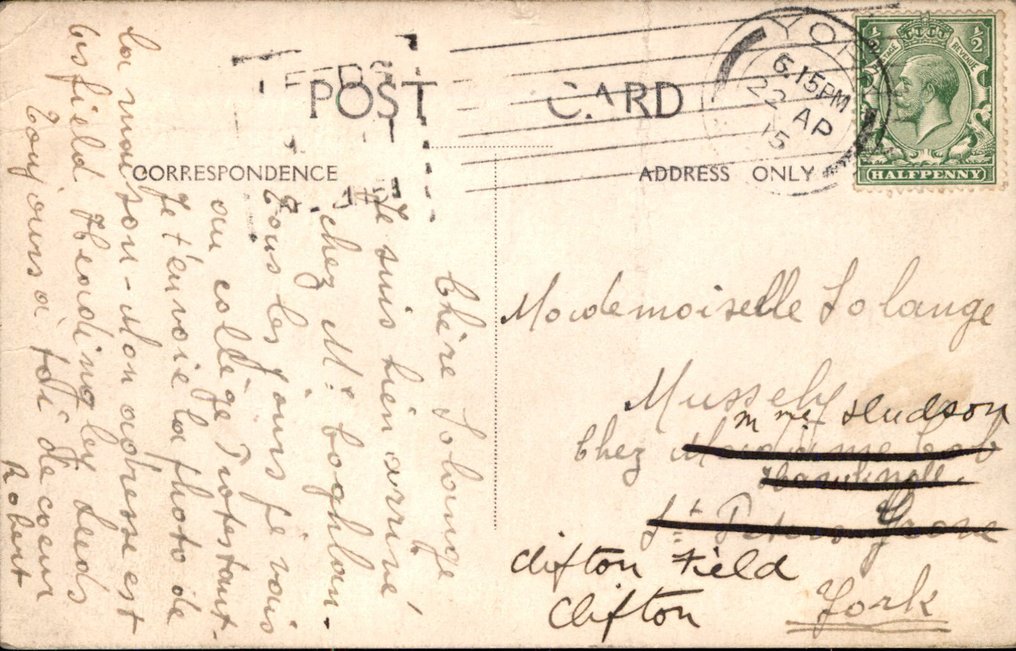 POST CARD
CORRESPONDENCE
ADDRESS ONLY
LEEDS
YORK
6.15PM
22 AP
15
½ ½
POSTAGE REVENUE
HALFPENNY
Chère Solange
Je suis bien arrivé
chez Mr Coghlan-
Tous les jours je vais
au collège Protestant.
Je t'envoie la photo de
la maison - Mon adresse est
Ashfield Headingley Leeds
Toujours à toi de coeur
Robert
Mademoiselle Solange
Mussely
Chez Mme Hudson
Madame
St Peters Grove
Clifton Field
Clifton York